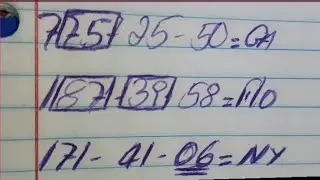 775 25-50=GA
187-39 58=MO
171-41-06=NY